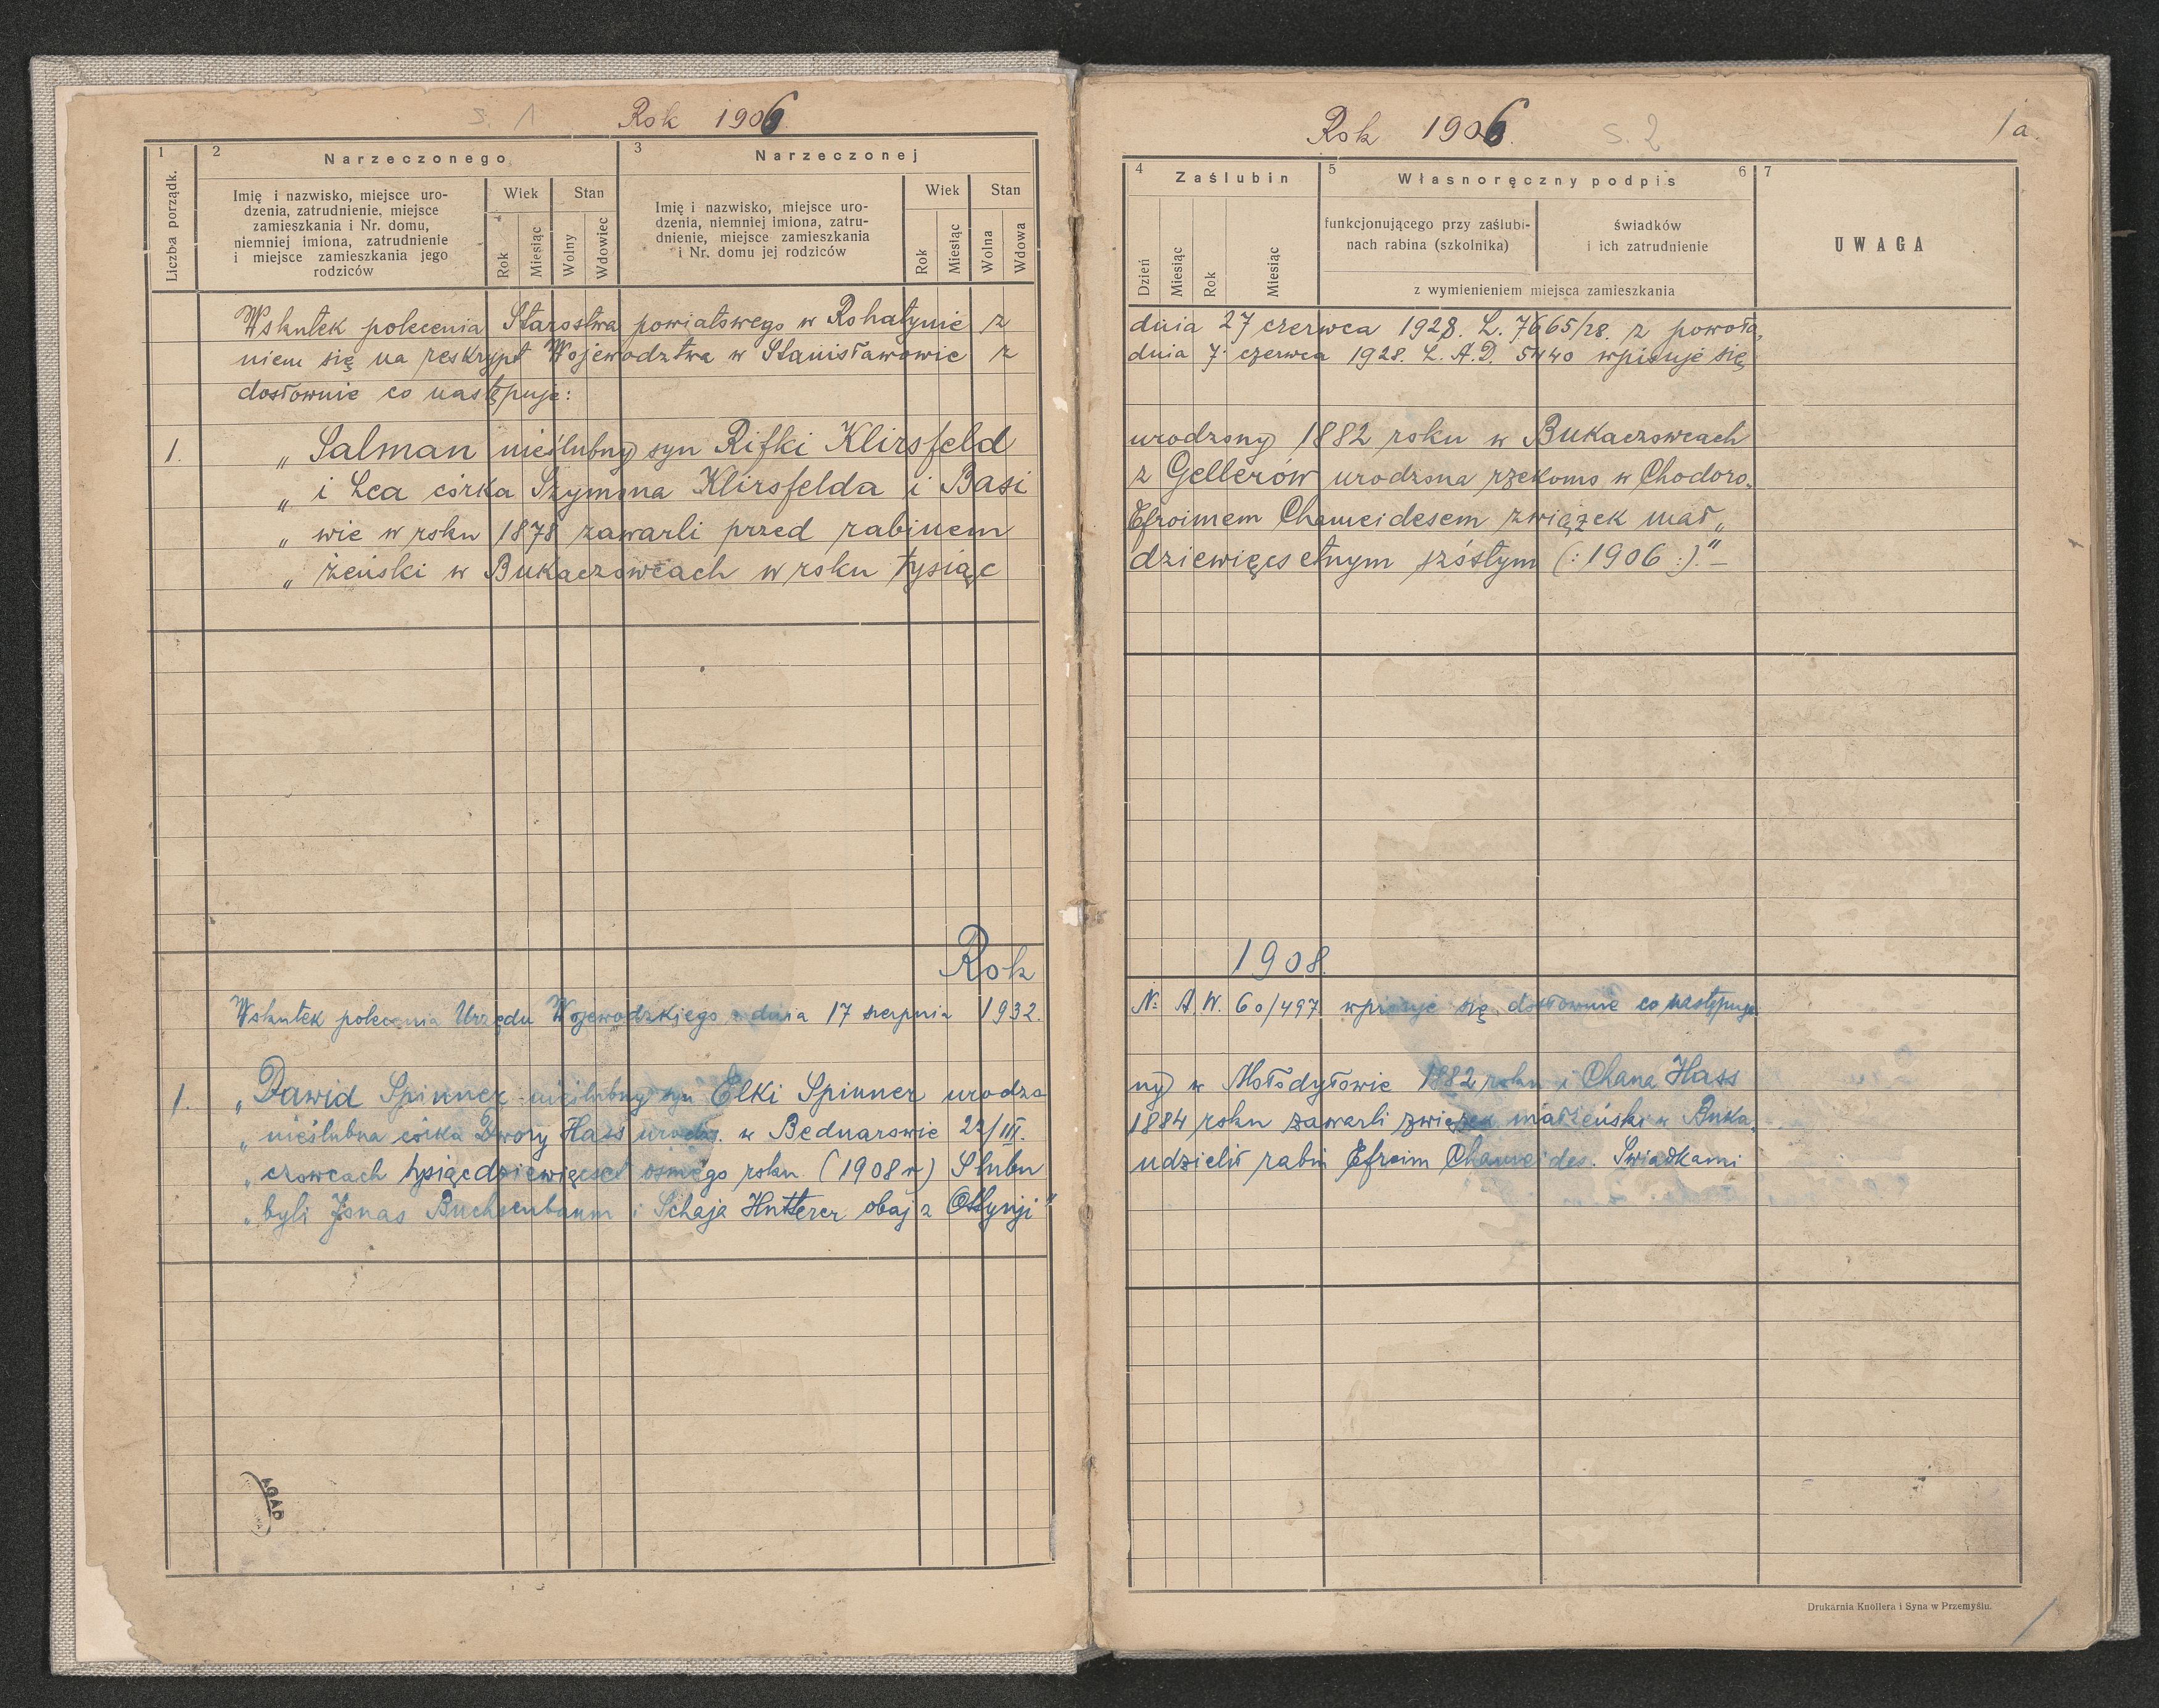 s. 1
Rok 1906.
1
2
Narzeczonego
3
Narzeczonej
Liczba porządk.
Imię i nazwisko, miejsce uro-
dzenia, zatrudnienie, miejsce
zamieszkania i Nr. domu,
niemniej imiona, zatrudnienie
i miejsce zamieszkania jego
rodziców
Wiek
Stan
Rok
Miesiąc
Wolny
Wdowiec
Imię i nazwisko, miejsce uro-
dzenia, niemniej imiona, zatru-
dnienie, miejsce zamieszkania
i Nr. domu jej rodziców
Wiek
Stan
Rok
Miesiąc
Wolna
Wdowa
Wskutek polecenia Starostwa powiatowego w Rohatynie z
niem się na reskrypt Województwa w Stanisławowie z
dosłownie co następuje:
1. „ Salman nieślubny syn Rifki Klirsfeld
„ i Lea córka Szymona Klirsfelda i Basi
„ wie w roku 1878 zawarli przed rabinem
„ żeński w Bukaczowcach w roku tysiąc
Rok
Wskutek polecenia Urzędu Wojewodzkiego z dnia 17 sierpnia 1932.
1. „Dawid Spinner nieślubny syn Elki Spinner urodzo
„ nieślubna córka Dwory Hass urodz. w Bednarowie 22/III.
„ czowcach tysiącdziewięćset osmego roku (1908 r) Slubu
„ byli Jonas Buchsenbaum i Schaja Hutterer obaj z Ottynji"
AGAD
Rok 1906.
s. 2
1a.
4
Zaślubin
5
Własnoręczny podpis
6
7
Dzień
Miesiąc
Rok
Miesiąc
funkcjonującego przy zaślubi-
nach rabina (szkolnika)
świadków
i ich zatrudnienie
z wymienieniem miejsca zamieszkania
UWAGA
dnia 27 czerwca 1928. L. 7665/28. z powoła„
dnia 7. czerwca 1928. L. A.D. 5440 wpisuje się
urodzony 1882 roku w Bukaczowcach
z Gellerów urodzona rzekomo w Chodoro„
Efroimem Chameidesem związek mał„
dziewięćsetnym szóstym (:1906:)."—
1908.
No A.W. 60/497 wpisuje się dosłownie co następuje
ny w Mołodyłowie 1882 roku i Chana Hass
1884 roku zawarli związek małżeński w Buka„
udzielił rabin Efroim Chameides. Swiadkami
Drukarnia Knollera i Syna w Przemyślu.